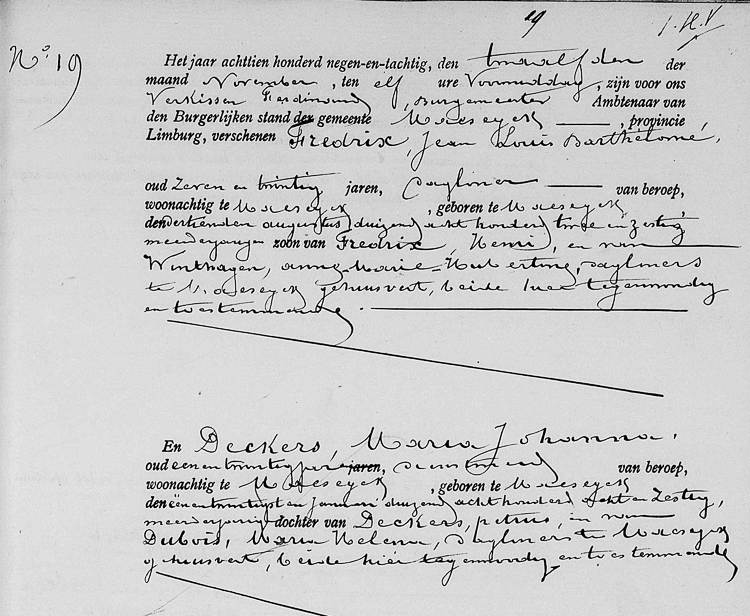 19
N.º 19
Het jaar achttien honderd negen-en-tachtig, den twaalfden der
maand November, ten elf ure Voormiddag, zijn voor ons
Verkissen Ferdinand, Burgemeester Ambtenaar van
den Burgerlijken stand der gemeente Maeseyck, provincie
Limburg, verschenen Fredrix, Jean Louis Barthélomé,
oud Zeven en twintig jaren, Daglooner van beroep,
woonachtig te Maeseyck, geboren te Maeseyck
den dertienden augustus duizend acht honderd twee en zestig,
meerderjarigen zoon van Fredrix, Henri, en van
Winthagen, anne-Marie-Hubertine, dagloners
te Maeseyck gehuisvest, beide hier tegenwoordig
en toestemmende.
En Deckers, Maria Johanna,
oud een en twintig jare jaren, dienstmeid van beroep,
woonachtig te Maeseyck, geboren te Maeseyck
den één en twintigsten Januari duizend acht honderd acht en Zestig,
meerderjarige dochter van Deckers, petrus, en van
Dubois, Maria Helena, dagloners te Maeseyck
gehuisvest, beide hier tegenwoordig en toestemmende